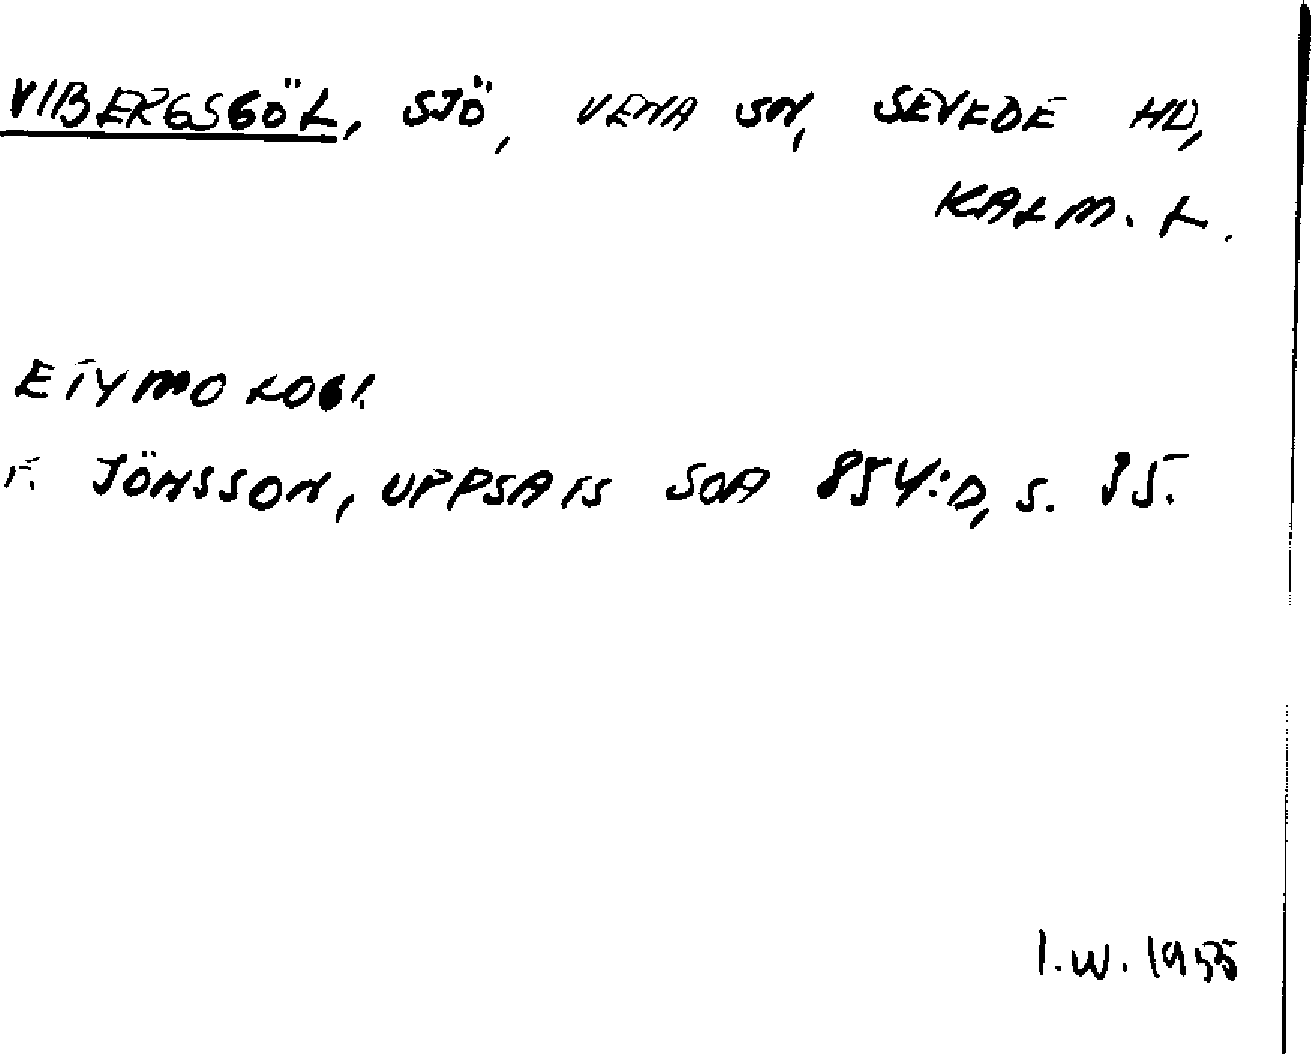 VIBERGSGÖL, SJÖ, VENA SN, SEVEDE HD,
KALM. L.
ETYMOLOGI.
F. JÖNSSON, UPPSATS SOA 854:D, S. 35.
I.W. 1955